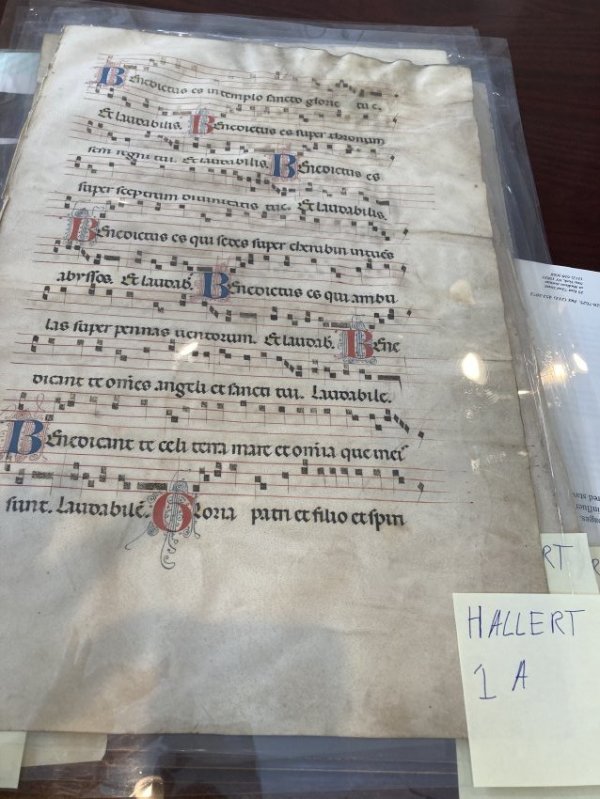 Benedictus es in templo sancto glorie tue.
Et laudabilis. Benedictus es super thronum
sem regni tui. Et laudabilis. Benedictus es
super sceptrum divinitatis tue. Et laudabilis.
Benedictus es qui sedes super cherubin intues
abyssos. Et laudab. Benedictus es qui ambu
las super pennas uentorum. Et laudab. Bene
dicant te om̄es angeli et sancti tui. Laudabile.
Benedicant te celi terra mare et om̄ia que in eiſ
sunt. Laudabile. Gloria patri et filio et spiri
HALLERT
1 A
RT